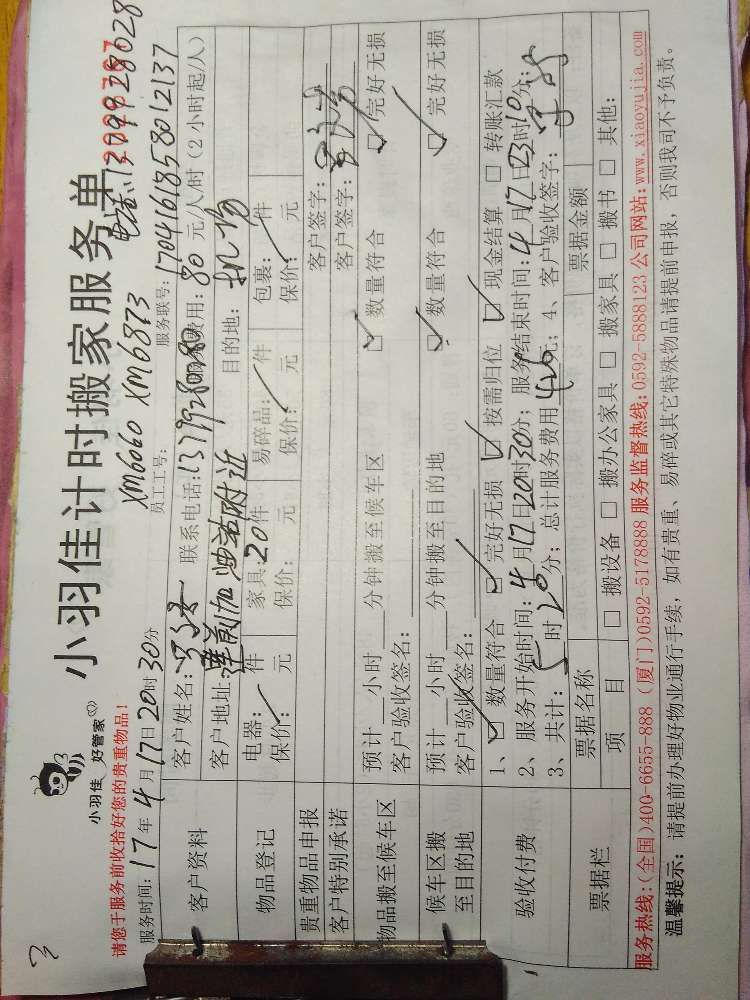 3
小羽佳 好管家
小羽佳计时搬家服务单
请您于服务前收拾好您的贵重物品!
XM6060 XM6873 电话:
服务时间:17年4月17日20时30分 员工工号: 服务联号:1704161858012137
客户资料
客户姓名: 联系电话: 费用:80元/人/时(2小时起/人)
客户地址: 莲前加油站附近 目的地:机场
物品登记
电器: 件 家具:20件 易碎品: 件 包裹: 件
保价: 元 保价: 元 保价: 元 保价: 元
贵重物品申报 客户签字:
客户特别承诺 客户签字:
物品搬至候车区
预计 小时 分钟搬至候车区 ☑数量符合 ☑完好无损
客户验收签名:
候车区搬至目的地
预计 小时 分钟搬至目的地 ☑数量符合 ☑完好无损
客户验收签名:
验收付费
1、☑数量符合 ☑完好无损 ☑按需归位 ☑现金结算 □转账汇款
2、服务开始时间:4月17日20时30分;服务结束时间:4月17日23时10分;
3、共计: 时 分;总计服务费用 元;4、客户验收签字:
票据栏
票据名称 票据金额
项目 □搬设备 □搬办公家具 □搬家具 □搬书 □其他:
服务热线:(全国)400-6655-888 (厦门)0592-5178888 服务监督热线:0592-5888123 公司网站:www.xiaoyujia.com
温馨提示:请提前办理好物业通行手续,如有贵重、易碎或其它特殊物品请提前申报,否则我司不予负责。